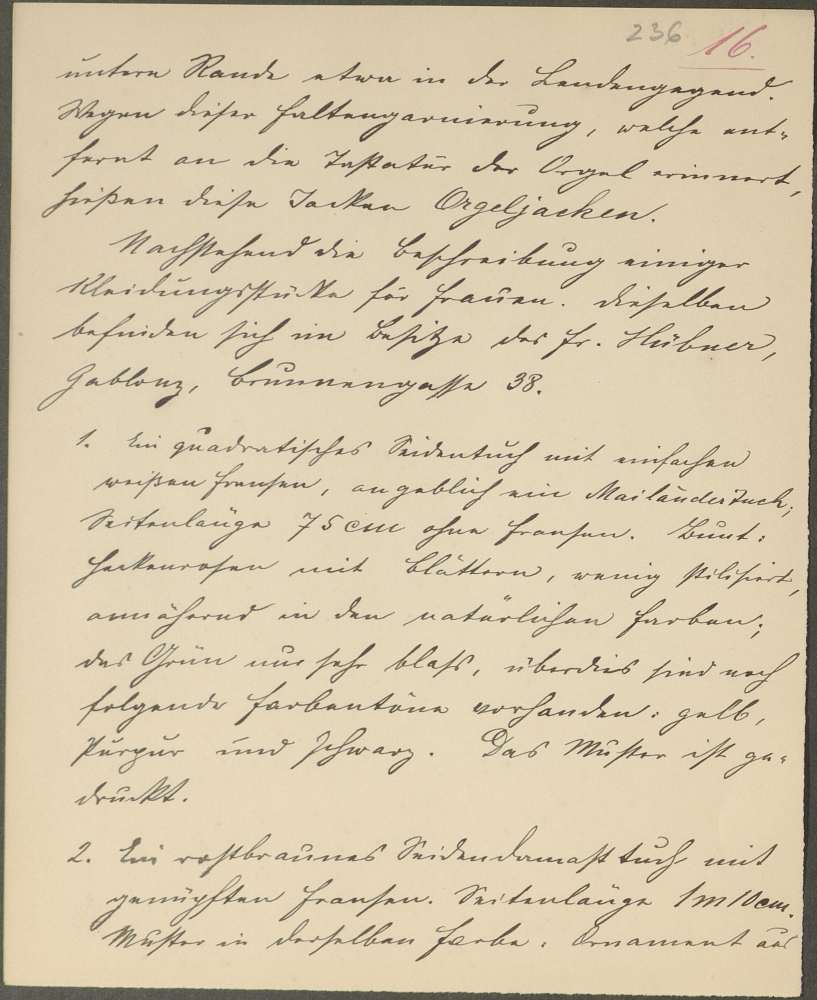 236 16.
untern Rande etwa in der Lendengegend.
Wegen dieser Faltengarnierung, welche ent-
fernt an die Tastatur der Orgel erinnert,
hießen diese Jacken Orgeljacken.
Nachstehend die Beschreibung einiger
Kleidungsstücke für Frauen. Dieselben
befinden sich im Besitze des Fr. Hübner,
Gablonz, Brunnengasse 38.
1. Ein quadratisches Seidentuch mit einfachen
weißen Fransen, angeblich ein Mailändertuch;
Seitenlänge 75 cm ohne Fransen. Bunt:
Heckenrosen mit Blättern, wenig stilisiert,
annähernd in den natürlichen Farben;
das Grün nur sehr blass, überdies sind noch
folgende Farbentöne vorhanden: gelb,
Purpur und schwarz. Das Muster ist ge-
druckt.
2. Ein rostbraunes Seidendamasttuch mit
geknüpften Fransen. Seitenlänge 1 m 10 cm.
Muster in derselben Farbe. Ornament aus